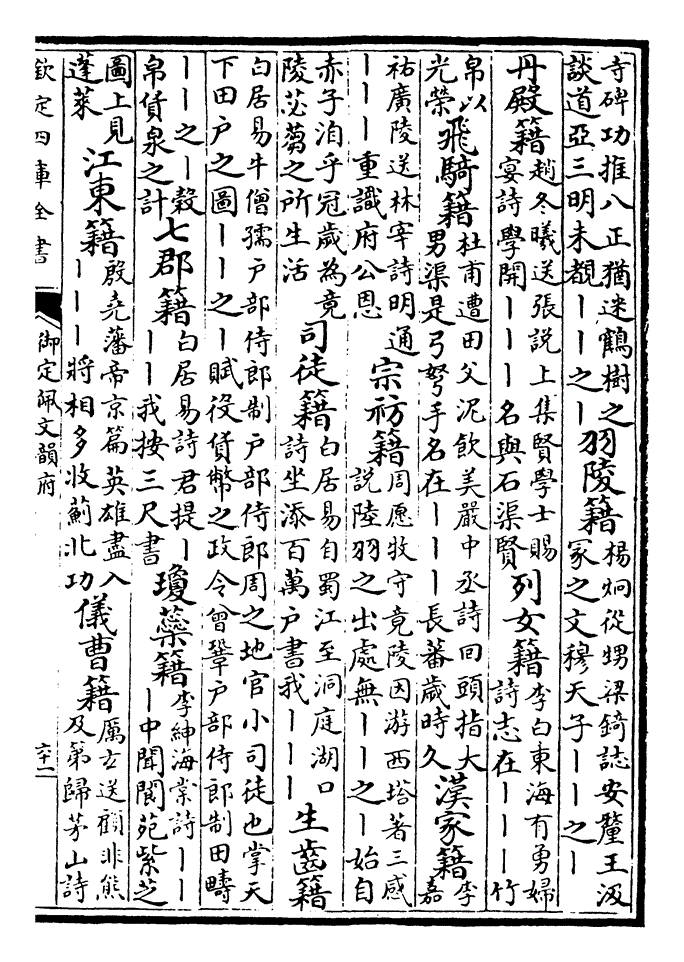 寺碑功推八正猶迷鶴樹之
談道亞三明未覩丨丨之丨
羽陵籍
楊炯從甥梁錡誌安釐王汲
冢之文穆天子丨丨之丨
丹殿籍
趙冬曦送張説上集賢學士賜
宴詩學開丨丨丨名與石渠賢
列女籍
李白東海有勇婦
詩志在丨丨丨竹
帛以
光榮
飛騎籍
杜甫遭田父泥飲美嚴中丞詩回頭指大
男渠是弓弩手名在丨丨丨長蕃歲時久
漢家籍
李
嘉
祐廣陵送林宰詩明通
丨丨丨重識府公恩
宗祊籍
周愿牧守竟陵因游西塔著三感
説陸羽之出處無丨丨之丨始自
赤子洎乎冠歲為竟
陵苾蒭之所生活
司徒籍
白居易自蜀江至洞庭湖口
詩坐添百萬户書我丨丨丨
生齒籍
白居易牛僧孺户部侍郎制户部侍郎周之地官小司徒也掌天
下田户之圖丨丨之丨賦役貨幣之政令曾鞏户部侍郎制田疇
丨丨之丨榖
帛貨泉之計
七郡籍
白居易詩君提丨
丨丨我按三尺書
瓊蘂籍
李紳海棠詩丨丨
丨中聞閬苑紫芝
圖上見
蓬萊
江東籍
殷堯藩帝京篇英雄盡入
丨丨丨將相多收薊北功
儀曹籍
厲玄送顧非熊
及第歸茅山詩
欽定四庫全書
御定佩文韻府
六十一